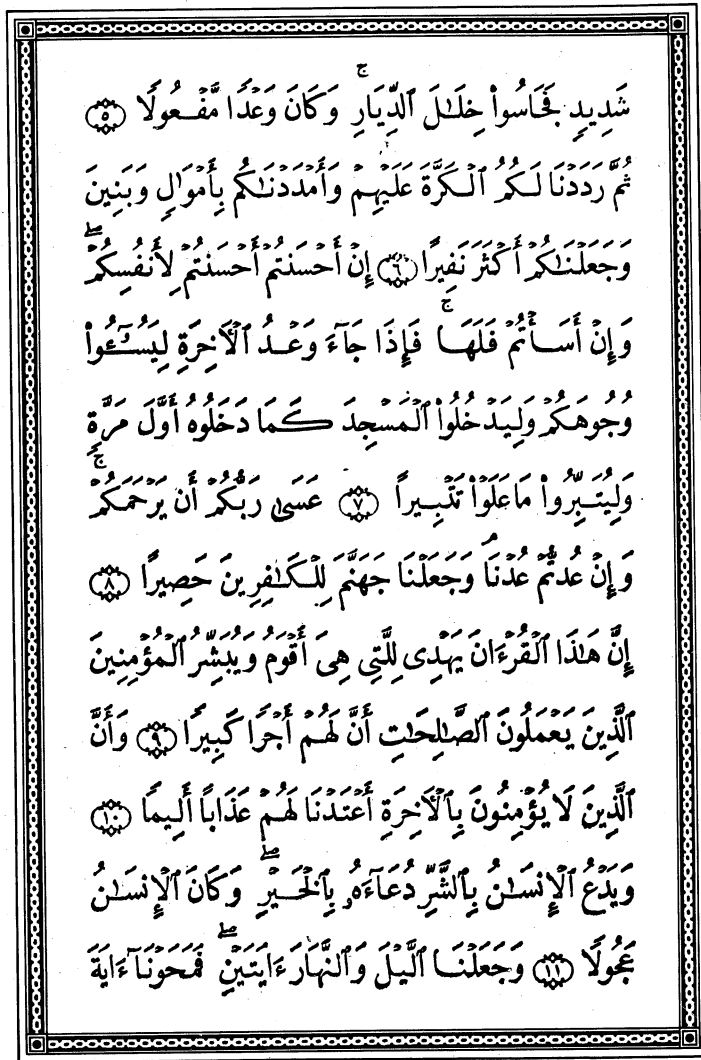 شَدِيدٍ فَجَاسُوا۟ خِلَـٰلَ ٱلدِّيَارِ ۚ وَكَانَ وَعْدًا مَّفْعُولًا ۝٥
ثُمَّ رَدَدْنَا لَكُمُ ٱلْكَرَّةَ عَلَيْهِمْ وَأَمْدَدْنَـٰكُم بِأَمْوَٰلٍ وَبَنِينَ
وَجَعَلْنَـٰكُمْ أَكْثَرَ نَفِيرًا ۝٦ إِنْ أَحْسَنتُمْ أَحْسَنتُمْ لِأَنفُسِكُمْ ۖ
وَإِنْ أَسَأْتُمْ فَلَهَا ۚ فَإِذَا جَآءَ وَعْدُ ٱلْـَٔاخِرَةِ لِيَسُـۥٓـُٔوا۟
وُجُوهَكُمْ وَلِيَدْخُلُوا۟ ٱلْمَسْجِدَ كَمَا دَخَلُوهُ أَوَّلَ مَرَّةٍ
وَلِيُتَبِّرُوا۟ مَا عَلَوْا۟ تَتْبِيرًا ۝٧ عَسَىٰ رَبُّكُمْ أَن يَرْحَمَكُمْ ۚ
وَإِنْ عُدتُّمْ عُدْنَا ۘ وَجَعَلْنَا جَهَنَّمَ لِلْكَـٰفِرِينَ حَصِيرًا ۝٨
إِنَّ هَـٰذَا ٱلْقُرْءَانَ يَهْدِى لِلَّتِى هِىَ أَقْوَمُ وَيُبَشِّرُ ٱلْمُؤْمِنِينَ
ٱلَّذِينَ يَعْمَلُونَ ٱلصَّـٰلِحَـٰتِ أَنَّ لَهُمْ أَجْرًا كَبِيرًا ۝٩ وَأَنَّ
ٱلَّذِينَ لَا يُؤْمِنُونَ بِٱلْـَٔاخِرَةِ أَعْتَدْنَا لَهُمْ عَذَابًا أَلِيمًا ۝١٠
وَيَدْعُ ٱلْإِنسَـٰنُ بِٱلشَّرِّ دُعَآءَهُۥ بِٱلْخَيْرِ ۖ وَكَانَ ٱلْإِنسَـٰنُ
عَجُولًا ۝١١ وَجَعَلْنَا ٱلَّيْلَ وَٱلنَّهَارَ ءَايَتَيْنِ ۖ فَمَحَوْنَآ ءَايَةَ